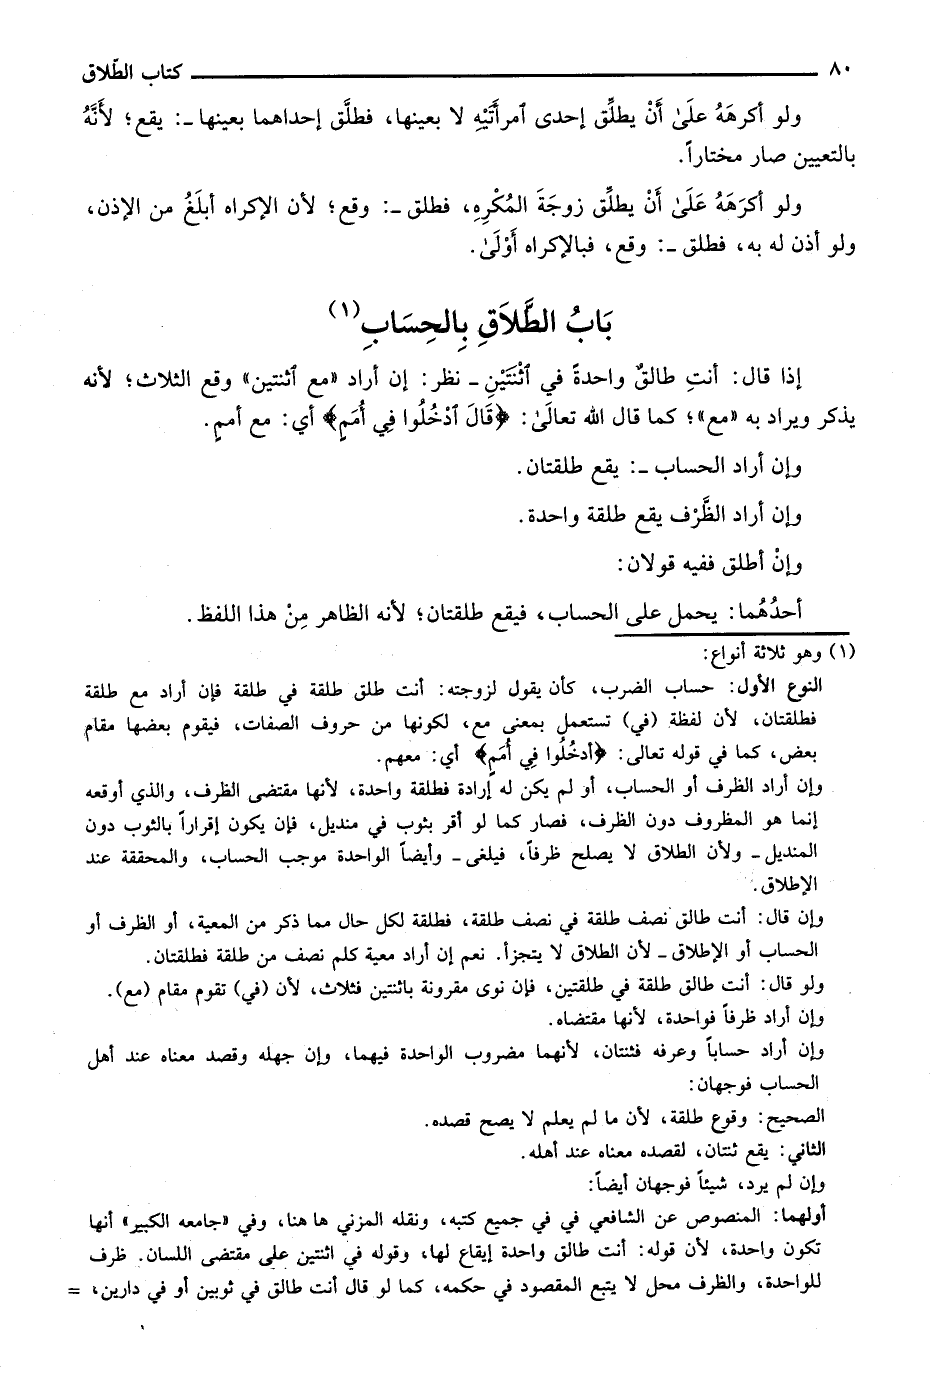 ٨٠ كتاب الطّلاق
ولو أكرهَهُ علَىٰ أَنْ يطلِّق إحدى ٱمرأَتَيْهِ لا بعينها، فطلَّق إحداهما بعينها ـ: يقع؛ لأنَّهُ
بالتعيين صار مختاراً.
ولو أكرَهَهُ عَلَىٰ أَنْ يطلِّق زوجةَ المُكْرِهِ، فطلق ـ: وقع؛ لأن الإكراه أبلَغُ من الإذن،
ولو أذن له به، فطلق ـ: وقع، فبالإكراه أَوْلَىٰ.
بَابُ الطَّلاَقِ بِالحِسَابِ(١)
إذا قال: أنتِ طالقٌ واحدةً في ٱثْنَتَيْنِ ـ نظر: إن أراد «مع ٱثنتين» وقع الثلاث؛ لأنه
يذكر ويراد به «مع»؛ كما قال الله تعالَىٰ: ﴿قَالَ ٱدْخُلُوا فِي أُمَمٍ﴾ أي: مع أممٍ.
وإن أراد الحساب ـ: يقع طلقتان.
وإن أراد الظَّرْف يقع طلقة واحدة.
وإنْ أطلق ففيه قولان:
أحدُهُما: يحمل على الحساب، فيقع طلقتان؛ لأنه الظاهر مِنْ هذا اللفظ.
(١) وهو ثلاثة أنواع:
النوع الأول: حساب الضرب، كأن يقول لزوجته: أنت طلق طلقة في طلقة فإن أراد مع طلقة
فطلقتان، لأن لفظة (في) تستعمل بمعنى مع، لكونها من حروف الصفات، فيقوم بعضها مقام
بعض، كما في قوله تعالى: ﴿أدخُلُوا فِي أُمَمٍ﴾ أي: معهم.
وإن أراد الظرف أو الحساب، أو لم يكن له إرادة فطلقة واحدة، لأنها مقتضى الظرف، والذي أوقعه
إنما هو المظروف دون الظرف، فصار كما لو أقر بثوب في منديل، فإن يكون إقراراً بالثوب دون
المنديل ـ ولأن الطلاق لا يصلح ظرفاً، فيلغى ـ وأيضاً الواحدة موجب الحساب، والمحققة عند
الإطلاق.
وإن قال: أنت طالق نصف طلقة في نصف طلقة، فطلقة لكل حال مما ذكر من المعية، أو الظرف أو
الحساب أو الإطلاق ـ لأن الطلاق لا يتجزأ. نعم إن أراد معية كلم نصف من طلقة فطلقتان.
ولو قال: أنت طالق طلقة في طلقتين، فإن نوى مقرونة باثنتين فثلاث، لأن (في) تقوم مقام (مع).
وإن أراد ظرفاً فواحدة، لأنها مقتضاه.
وإن أراد حساباً وعرفه فثنتان، لأنهما مضروب الواحدة فيهما، وإن جهله وقصد معناه عند أهل
الحساب فوجهان:
الصحيح: وقوع طلقة، لأن ما لم يعلم لا يصح قصده.
الثاني: يقع ثنتان، لقصده معناه عند أهله.
وإن لم يرد، شيئاً فوجهان أيضاً:
أولهما: المنصوص عن الشافعي في في جميع كتبه، ونقله المزني ها هنا، وفي «جامعه الكبير» أنها
تكون واحدة، لأن قوله: أنت طالق واحدة إيقاع لها، وقوله في اثنتين على مقتضى اللسان. ظرف
للواحدة، والظرف محل لا يتبع المقصود في حكمه، كما لو قال أنت طالق في ثوبين أو في دارين، =